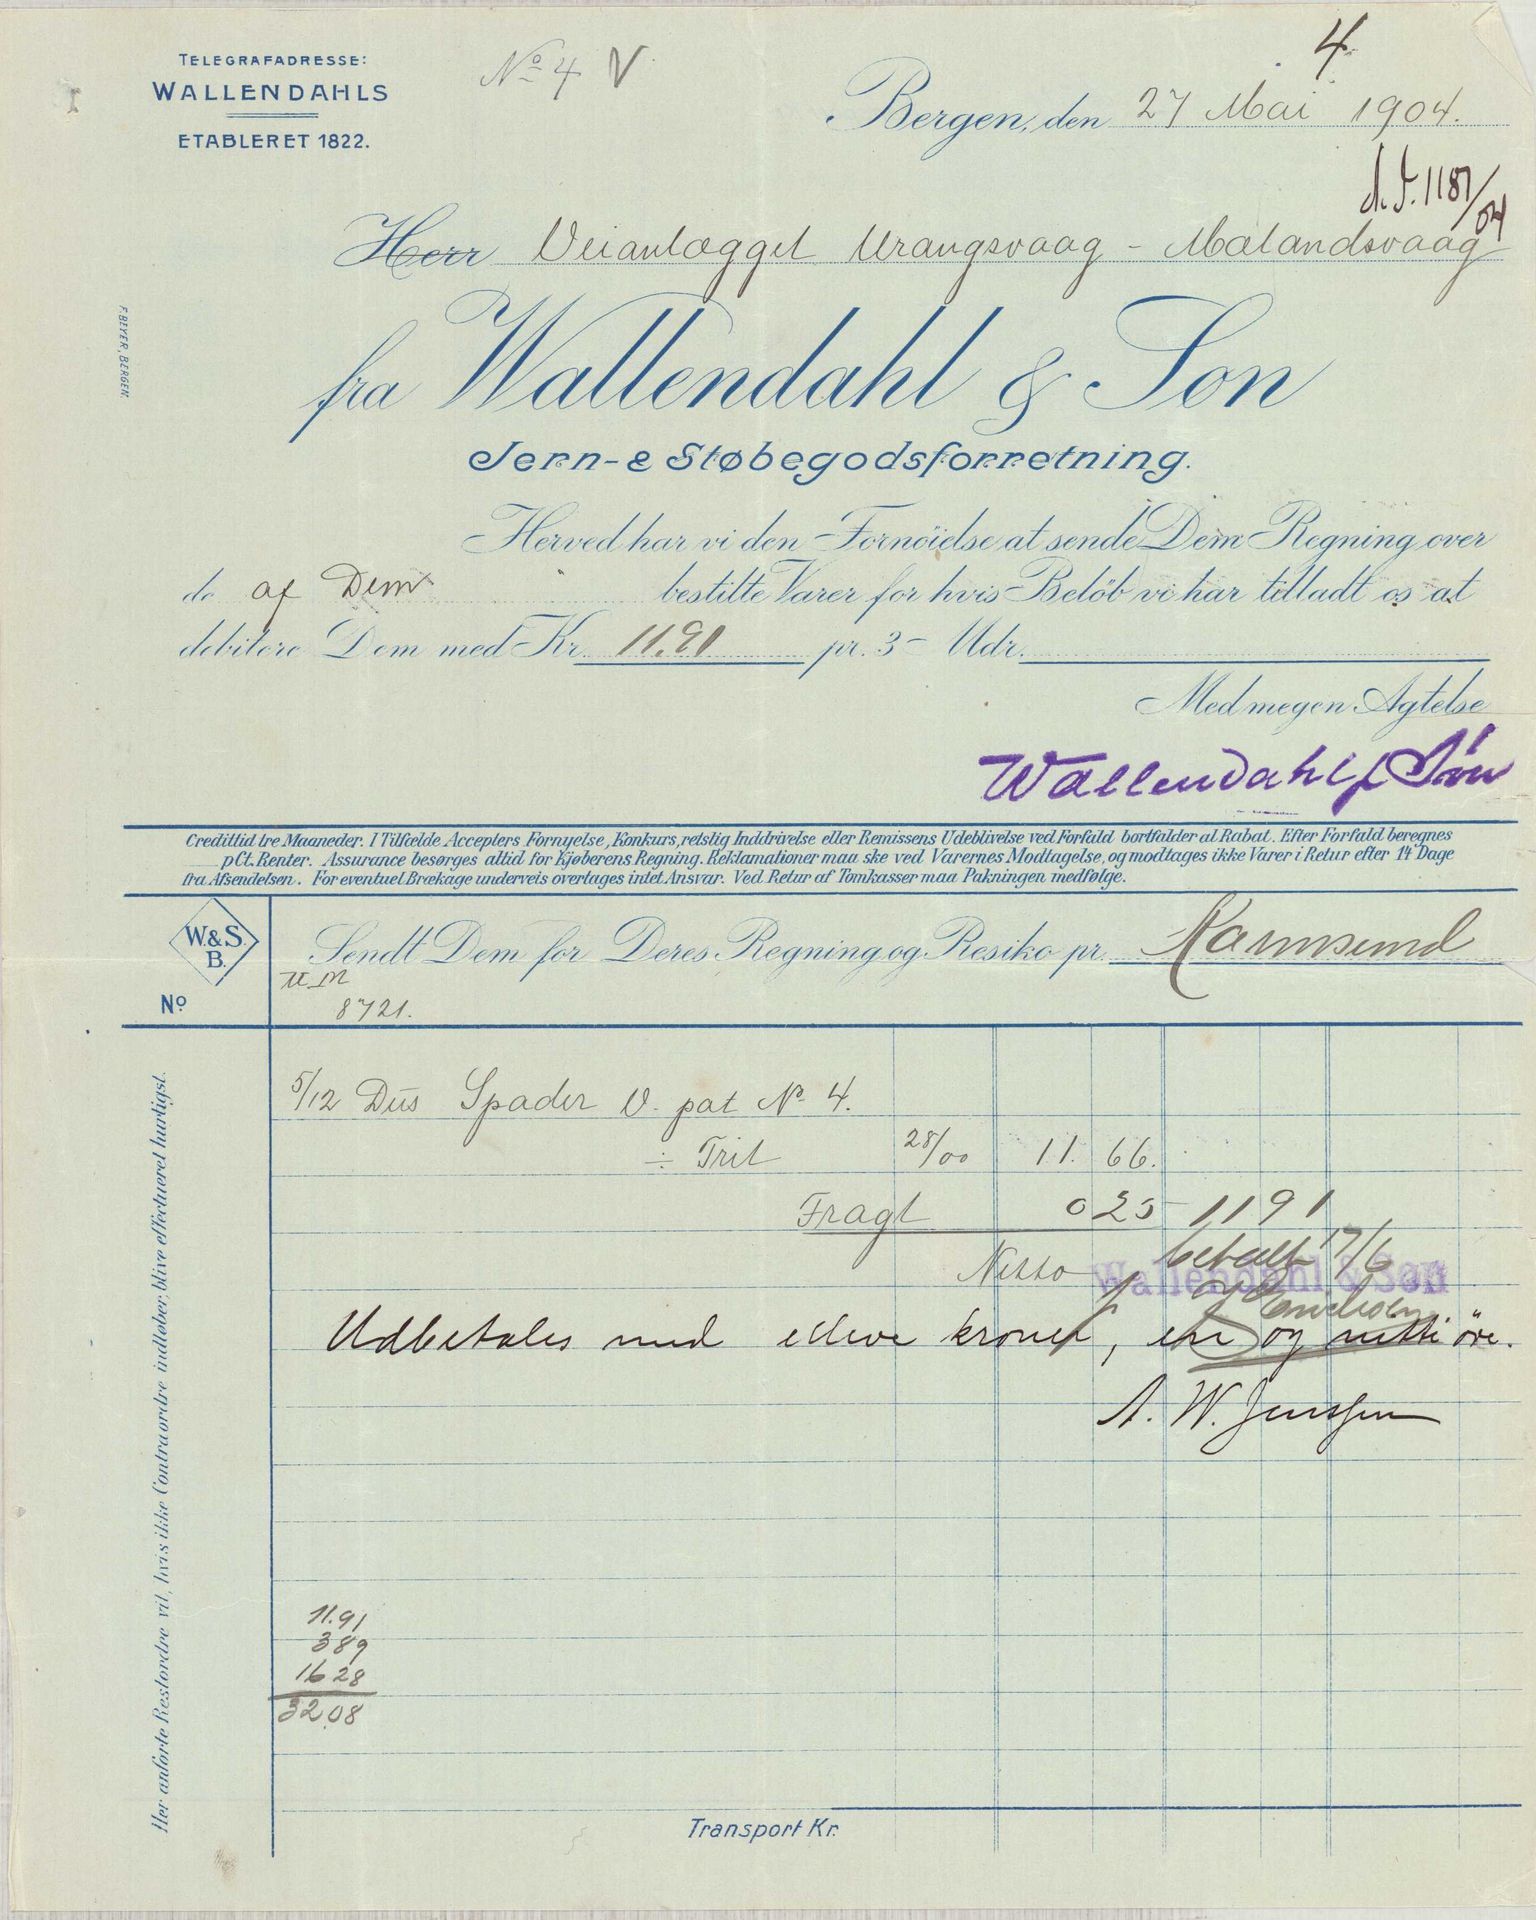 TELEGRAFADRESSE:
WALLENDAHLS
ETABLERET 1822.
No 4 V
4
Bergen, den 27 Mai 1904.
d.J. 1187/04
Herr Veianlægget Urangsvaag - Mælandsvaag
fra Wallendahl & Søn
Jern- & Støbegodsforretning.
F. BEYER, BERGEN.
Herved har vi den Fornöielse at sende Dem Regning over
de af Dem bestilte Varer for hvis Belöb vi har tilladt os at
debitere Dem med Kr. 11.91 pr. 3 - Mdr.
Med megen Agtelse
Wallendahl & Søn
Credittid tre Maaneder. I Tilfælde Accepters Fornyelse, Konkurs, retslig Inddrivelse eller Remissens Udeblivelse ved Forfald bortfalder al Rabat. Efter Forfald beregnes
pCt. Renter. Assurance besørges altid for Kjøberens Regning. Reklamationer maa ske ved Varernes Modtagelse, og modtages ikke Varer i Retur efter 14 Dage
fra Afsendelsen. For eventuel Brækage underveis overtages intet Ansvar. Ved Retur af Tomkasser maa Pakningen medfølge.
W. & S.
B.
No
Sendt Dem for Deres Regning og Resiko pr. Karmsund
U_M
8721.
5/12 Dus Spader V. pat No 4.
÷ Trit 28/00 11.66.
Fragt 025 1191
Netto betalt 17/6
Wallendahl & Søn
Udbetales med elleve kroner, en og nitti øre.
A. W. Jenssen
11.91
389
1628
32.08
Transport Kr.
Her anførte Restordre vil, hvis ikke Contraordre indløber, blive effectueret hurtigst.